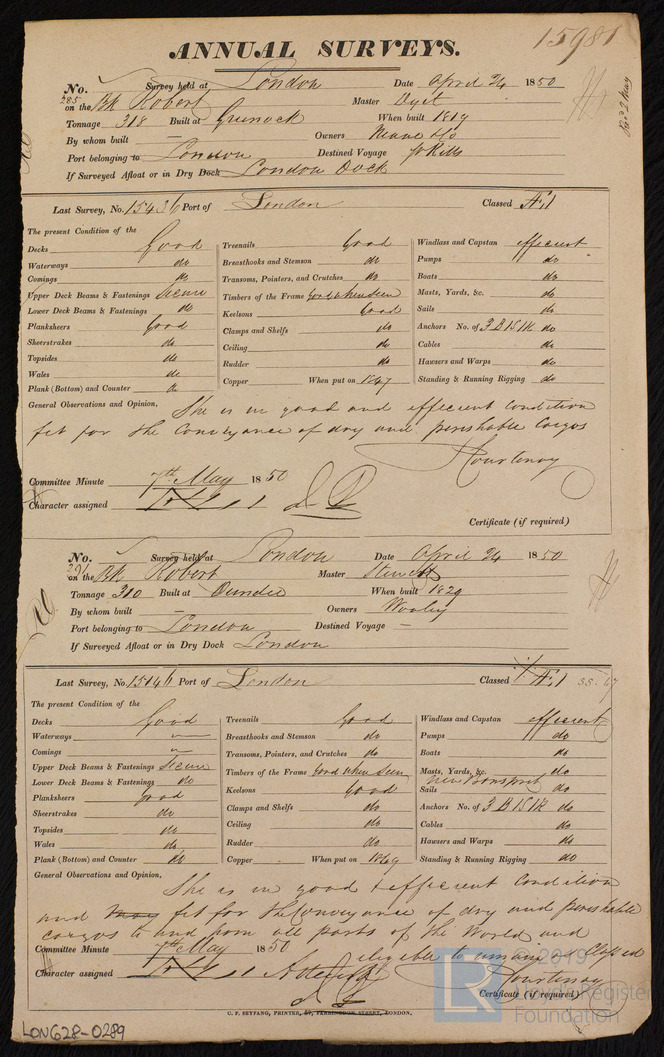 15981
ANNUAL SURVEYS.
No. 285 Survey held at London Date April 24 1850
on the Bk Robert Master
Tonnage 318 Built at Greenock When built 1819
By whom built — Owners
Port belonging to London Destined Voyage
If Surveyed Afloat or in Dry Dock London Dock
Last Survey, No. 15436 Port of London Classed Æ1
The present Condition of the
Decks Good
Waterways do
Comings do
Upper Deck Beams & Fastenings Secure
Lower Deck Beams & Fastenings do
Planksheers Good
Sheerstrakes do
Topsides do
Wales do
Plank (Bottom) and Counter do
Treenails Good
Breasthooks and Stemson do
Transoms, Pointers, and Crutches do
Timbers of the Frame Good when seen
Keelsons Good
Clamps and Shelfs do
Ceiling do
Rudder do
Copper When put on 1847
Windlass and Capstan efficient
Pumps do
Boats do
Masts, Yards, &c. do
Sails do
Anchors No. of 3 B 1 S 1 K do
Cables do
Hawsers and Warps do
Standing & Running Rigging do
General Observations and Opinion, She is in good and efficient condition
fit for the conveyance of dry and perishable Cargos
Courtenay
Committee Minute 7th May 1850
Character assigned
Certificate (if required)
No. 291 Survey held at London Date April 24 1850
on the Bk Robert Master
Tonnage 310 Built at Dundee When built 1829
By whom built — Owners Wooley
Port belonging to London Destined Voyage —
If Surveyed Afloat or in Dry Dock London
Last Survey, No. 15146 Port of London Classed Æ1
The present Condition of the
Decks Good
Waterways
Comings
Upper Deck Beams & Fastenings Secure
Lower Deck Beams & Fastenings do
Planksheers good
Sheerstrakes do
Topsides do
Wales do
Plank (Bottom) and Counter do
Treenails Good
Breasthooks and Stemson do
Transoms, Pointers, and Crutches do
Timbers of the Frame Good when seen
Keelsons Good
Clamps and Shelfs do
Ceiling do
Rudder do
Copper When put on 1849
Windlass and Capstan efficient
Pumps do
Boats do
Masts, Yards, &c. do
New Bowsprit
Sails do
Anchors No. of 3 B 1 S 1 K do
Cables do
Hawsers and Warps do
Standing & Running Rigging do
General Observations and Opinion,
She is in good & efficient condition
and fit for the Conveyance of dry and perishable
cargos to and from all parts of the World and
eligible to remain as Classed
Courtenay
Committee Minute 7th May 1850
Character assigned
Certificate (if required)
C. F. SEYFANG, PRINTER, 57, FARRINGDON STREET, LONDON.
LON628-0289
© 2019
LR
Lloyd's Register
Foundation